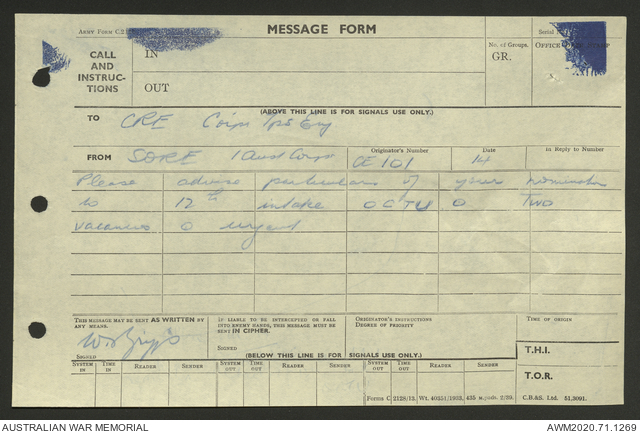 Army Form C.2
MESSAGE FORM
Serial No.
CALL AND INSTRUCTIONS
IN
OUT
No. of Groups.
GR.
OFFICE
(ABOVE THIS LINE IS FOR SIGNALS USE ONLY.)
TO CRE Corps Tps Eng
FROM SORE 1 Aust Corps
Originator's Number
CE 101
Date
14
In Reply to Number
Please advise particulars of your nominates
to 12th intake OCTU O TWO
vacancies O urgent
THIS MESSAGE MAY BE SENT AS WRITTEN BY ANY MEANS.
SIGNED
IF LIABLE TO BE INTERCEPTED OR FALL INTO ENEMY HANDS, THIS MESSAGE MUST BE SENT IN CIPHER.
SIGNED
ORIGINATOR'S INSTRUCTIONS
DEGREE OF PRIORITY
TIME OF ORIGIN
(BELOW THIS LINE IS FOR SIGNALS USE ONLY.)
T.H.I.
SYSTEM IN TIME IN READER SENDER SYSTEM OUT TIME OUT READER SENDER SYSTEM OUT TIME OUT READER SENDER
T.O.R.
Forms C 2128/13. Wt. 40351/1933. 435 2/39. C.B.&S. Ltd. 51,3091.
AUSTRALIAN WAR MEMORIAL
AWM2020.71.1269